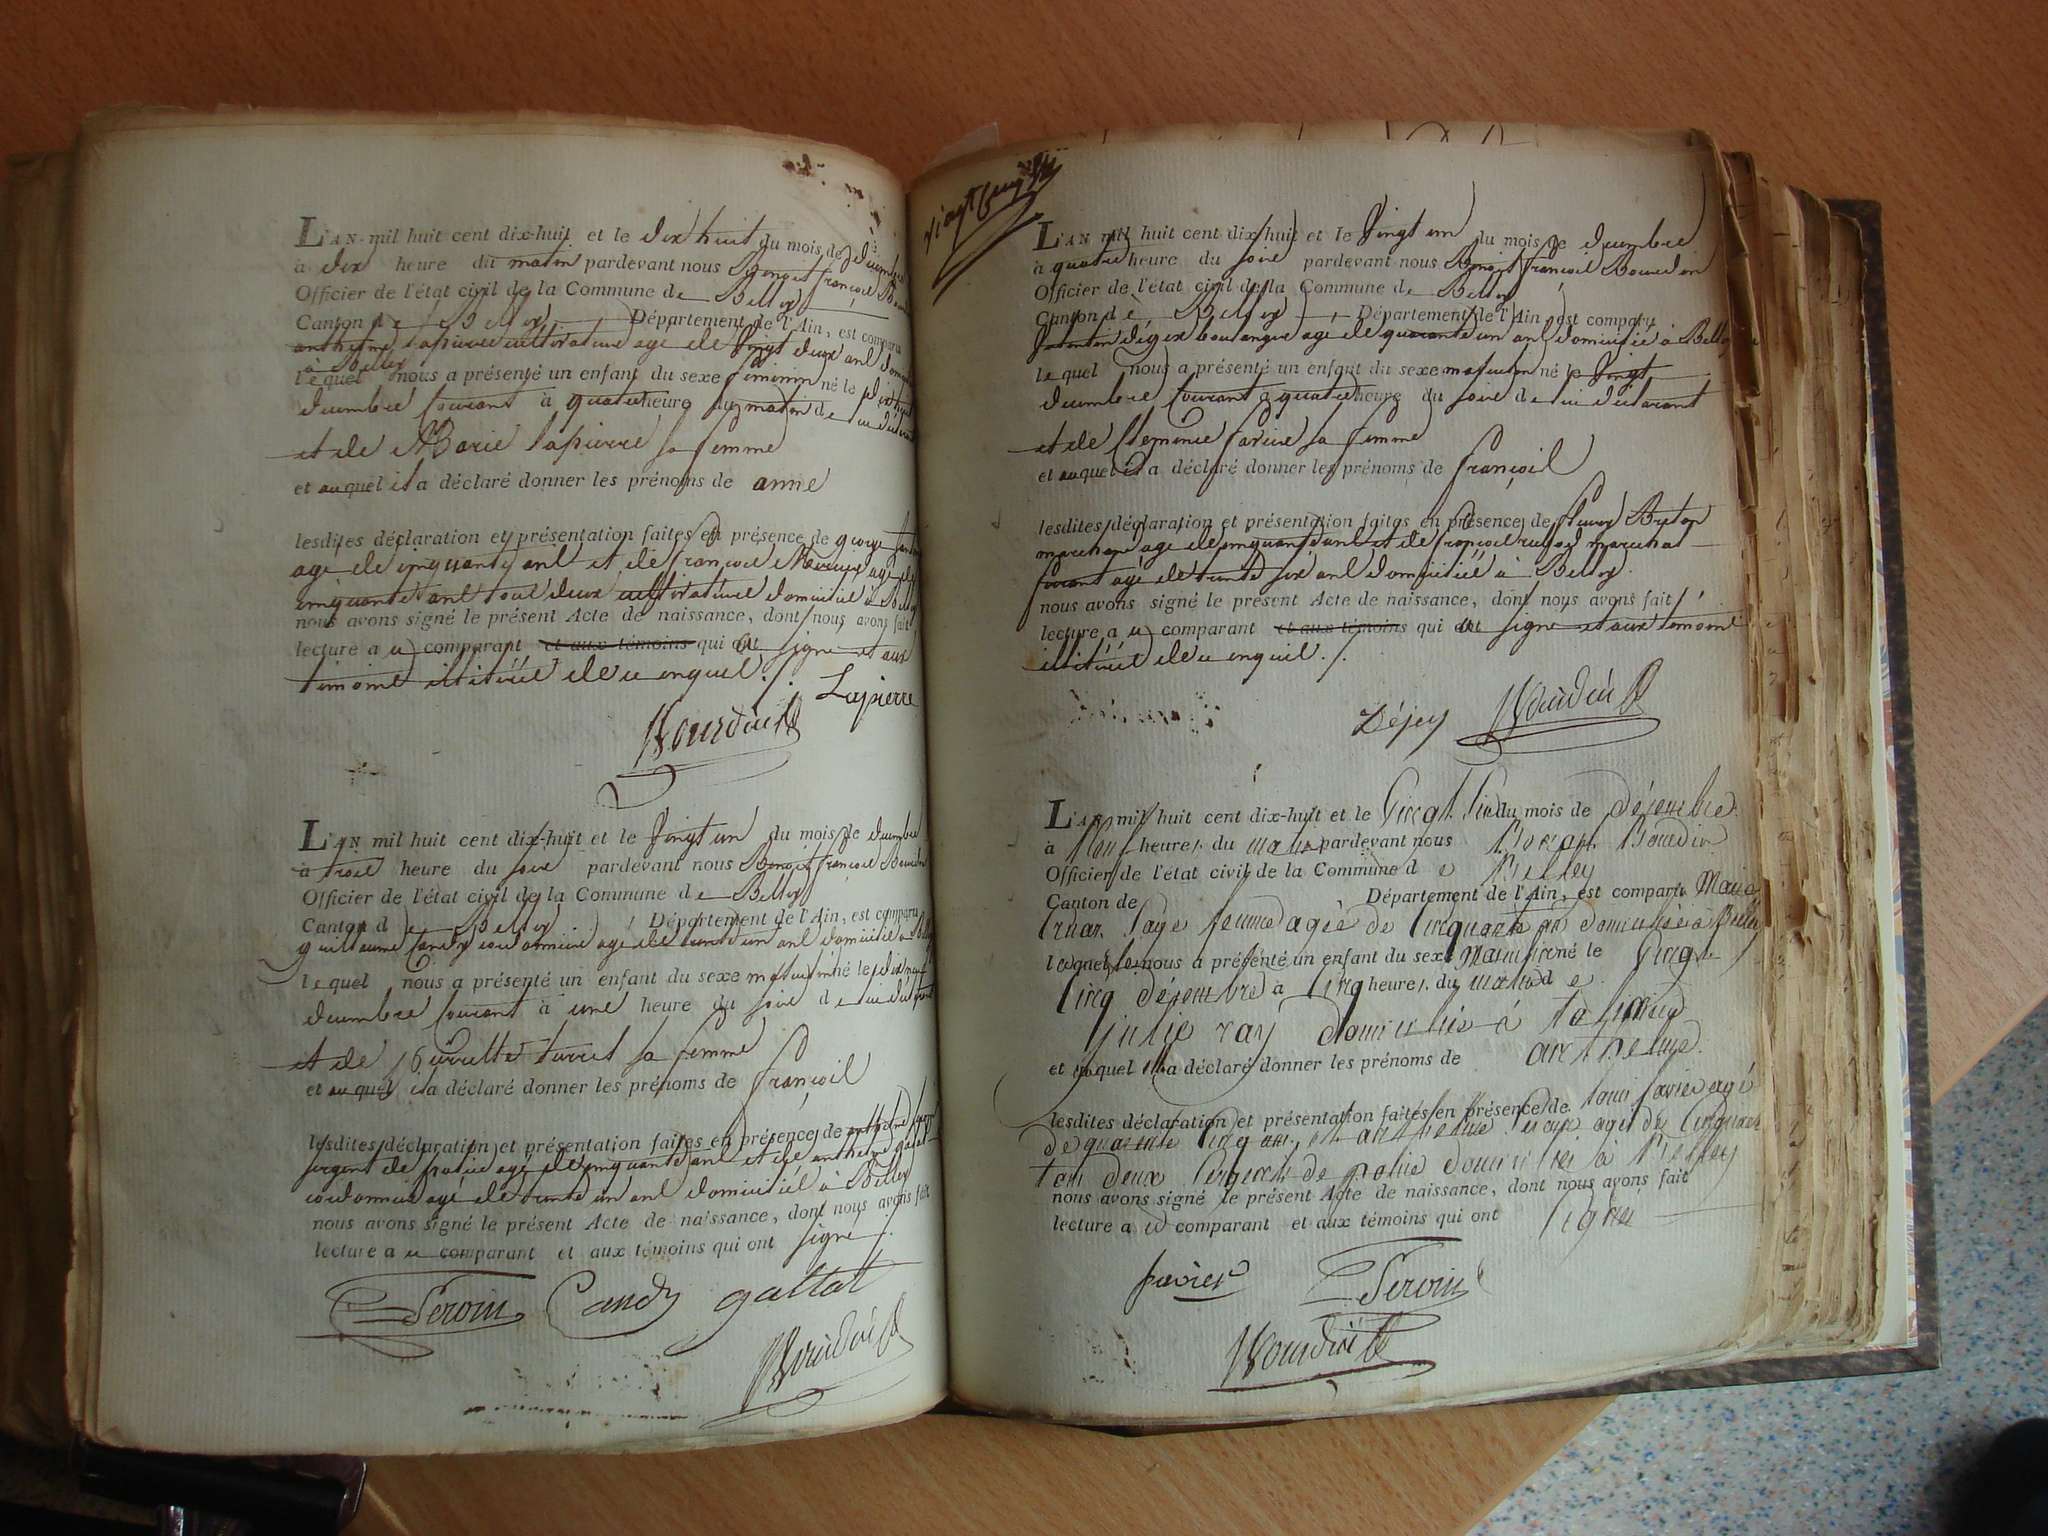 L'AN mil huit cent dix-huit et le dix huit du mois de décembre
à dix heure du matin pardevant nous Benoit françois
Officier de l'état civil de la Commune de Belley
Canton de Belley, Département de l'Ain, est comparu
anthelme Lapierre cultivateur agé de vingt deux ans
à Belley
lequel nous a présenté un enfant du sexe féminin né le dix huit
décembre courant à quatre heure du matin de lui déclarant
et de Marie Lapierre sa femme
et auquel il a déclaré donner les prénoms de anne
lesdites déclaration et présentation faites en présence de george
agé de cinquante ans et de françois agé de
cinquante ans tous deux cultivateurs domiciliés à Belley
nous avons signé le présent Acte de naissance, dont nous avons fait
lecture au comparant et aux témoins qui a signé et aux
témoins illitérés de ce enquis ./.
Lapierre
L'AN mil huit cent dix-huit et le vingt un du mois de décembre
à trois heure du soir pardevant nous Benoit françois
Officier de l'état civil de la Commune de Belley
Canton de Belley, Département de l'Ain, est comparu
guillaume Candy cordonnier agé de trente un ans domicilié à Belley
lequel nous a présenté un enfant du sexe masculin né le dix neuf
décembre courant à une heure du soir de lui déclarant
et de Pierrette turret sa femme
et auquel il a déclaré donner les prénoms de françois
lesdites déclaration et présentation faites en présence de anthelme
sergent de police agé de cinquante ans et de anthelme
cordonnier agé de trente un ans domiciliés à Belley
nous avons signé le présent Acte de naissance, dont nous avons fait
lecture au comparant et aux témoins qui ont signé ./.
Candy gallat
L'AN mil huit cent dix-huit et le vingt un du mois de décembre
à quatre heure du soir pardevant nous Benoit françois
Officier de l'état civil de la Commune de Belley
Canton de Belley, Département de l'Ain, est comparu
boulanger agé de quarante un ans domicilié à Belley
lequel nous a présenté un enfant du sexe masculin né le vingt
décembre courant à quatre heure du soir de lui déclarant
et de sa femme
et auquel il a déclaré donner les prénoms de françois
lesdites déclaration et présentation faites en présence de Breton
marchand agé de cinquante ans et de françois marechal
ferrant agé de trente six ans domiciliés à Belley
nous avons signé le présent Acte de naissance, dont nous avons fait
lecture au comparant et aux témoins qui a signé et aux témoins
illitérés de ce enquis ./.
L'AN mil huit cent dix-huit et le vingt cinq du mois de décembre
à heures du matin pardevant nous
Officier de l'état civil de la Commune de Belley
Canton de Département de l'Ain, est comparu Maria
sage femme agée de cinquante an domiciliée à Belley
laquelle nous a présenté un enfant du sexe Masculin né le vingt
cinq décembre à cinq heures du matin de
julie ray domiciliée à
et auquel elle a déclaré donner les prénoms de anthelme
lesdites déclaration et présentation faites en présence de favier agé
de quarante cinq ans, et anthelme agé de cinquante
tous deux sergents de police domiciliés à Belley
nous avons signé le présent Acte de naissance, dont nous avons fait
lecture au comparant et aux témoins qui ont signé
favier